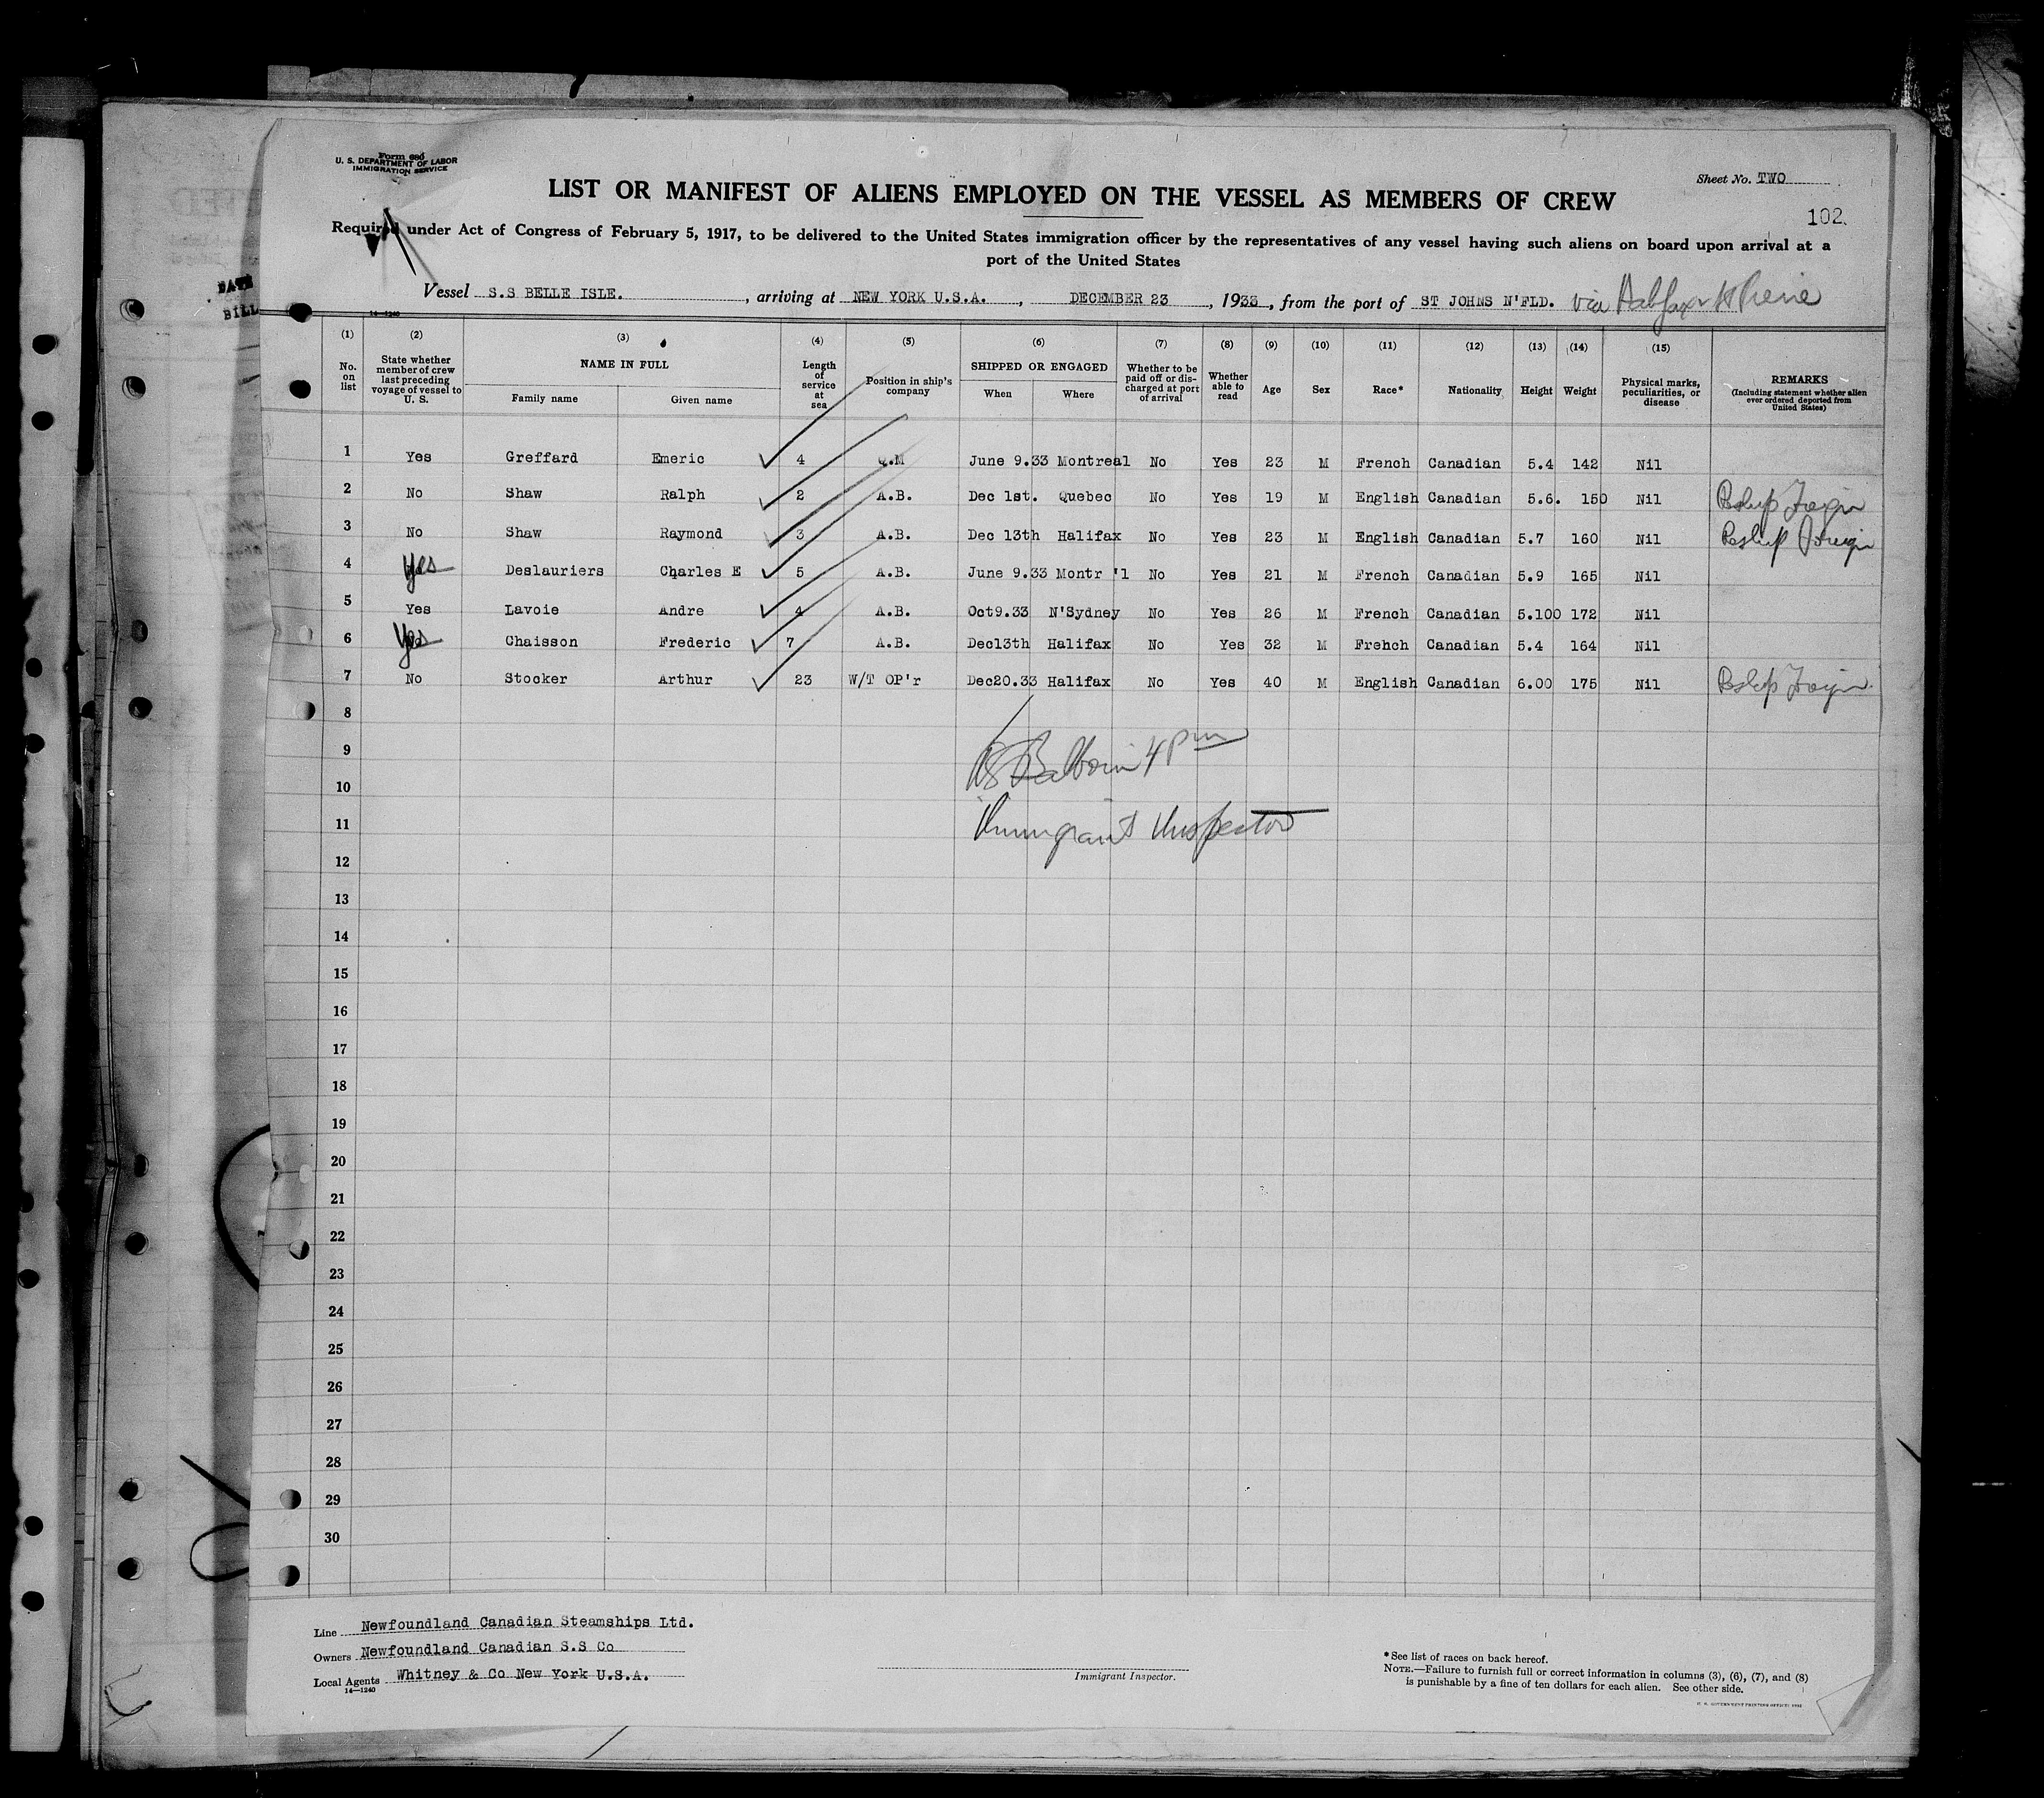 Form 680
U. S. DEPARTMENT OF LABOR
IMMIGRATION SERVICE
Sheet No. TWO
LIST OR MANIFEST OF ALIENS EMPLOYED ON THE VESSEL AS MEMBERS OF CREW
102
Required under Act of Congress of February 5, 1917, to be delivered to the United States immigration officer by the representatives of any vessel having such aliens on board upon arrival at a
port of the United States
Vessel S.S BELLE ISLE. , arriving at NEW YORK U.S.A. , DECEMBER 23 , 1933 , from the port of ST JOHNS N'FLD. via Halifax
14—1240
(1) (2) (3) (4) (5) (6) (7) (8) (9) (10) (11) (12) (13) (14) (15)
No. on list State whether member of crew last preceding voyage of vessel to U. S. NAME IN FULL Family name Given name Length of service at sea Position in ship's company SHIPPED OR ENGAGED When Where Whether to be paid off or discharged at port of arrival Whether able to read Age Sex Race* Nationality Height Weight Physical marks, peculiarities, or disease REMARKS (Including statement whether alien ever ordered deported from United States)
1 Yes Greffard Emeric 4 Q.M June 9.33 Montreal No Yes 23 M French Canadian 5.4 142 Nil
2 No Shaw Ralph 2 A.B. Dec 1st. Quebec No Yes 19 M English Canadian 5.6. 150 Nil Reship Foreign
3 No Shaw Raymond 3 A.B. Dec 13th Halifax No Yes 23 M English Canadian 5.7 160 Nil Reship Foreign
4 Yes Deslauriers Charles E 5 A.B. June 9.33 Montr 'l No Yes 21 M French Canadian 5.9 165 Nil
5 Yes Lavoie Andre 4 A.B. Oct9.33 N'Sydney No Yes 26 M French Canadian 5.100 172 Nil
6 Yes Chaisson Frederic 7 A.B. Dec13th Halifax No Yes 32 M Frehch Canadian 5.4 164 Nil
7 No Stocker Arthur 23 W/T OP'r Dec20.33 Halifax No Yes 40 M English Canadian 6.00 175 Nil Reship Foreign
8
9
4 pm
10
11
Immigrant Inspector
12
13
14
15
16
17
18
19
20
21
22
23
24
25
26
27
28
29
30
Line Newfoundland Canadian Steamships Ltd.
Owners Newfoundland Canadian S.S Co
Local Agents Whitney & Co New York U.S.A.
14—1240
Immigrant Inspector.
*See list of races on back hereof.
NOTE.—Failure to furnish full or correct information in columns (3), (6), (7), and (8)
is punishable by a fine of ten dollars for each alien. See other side.